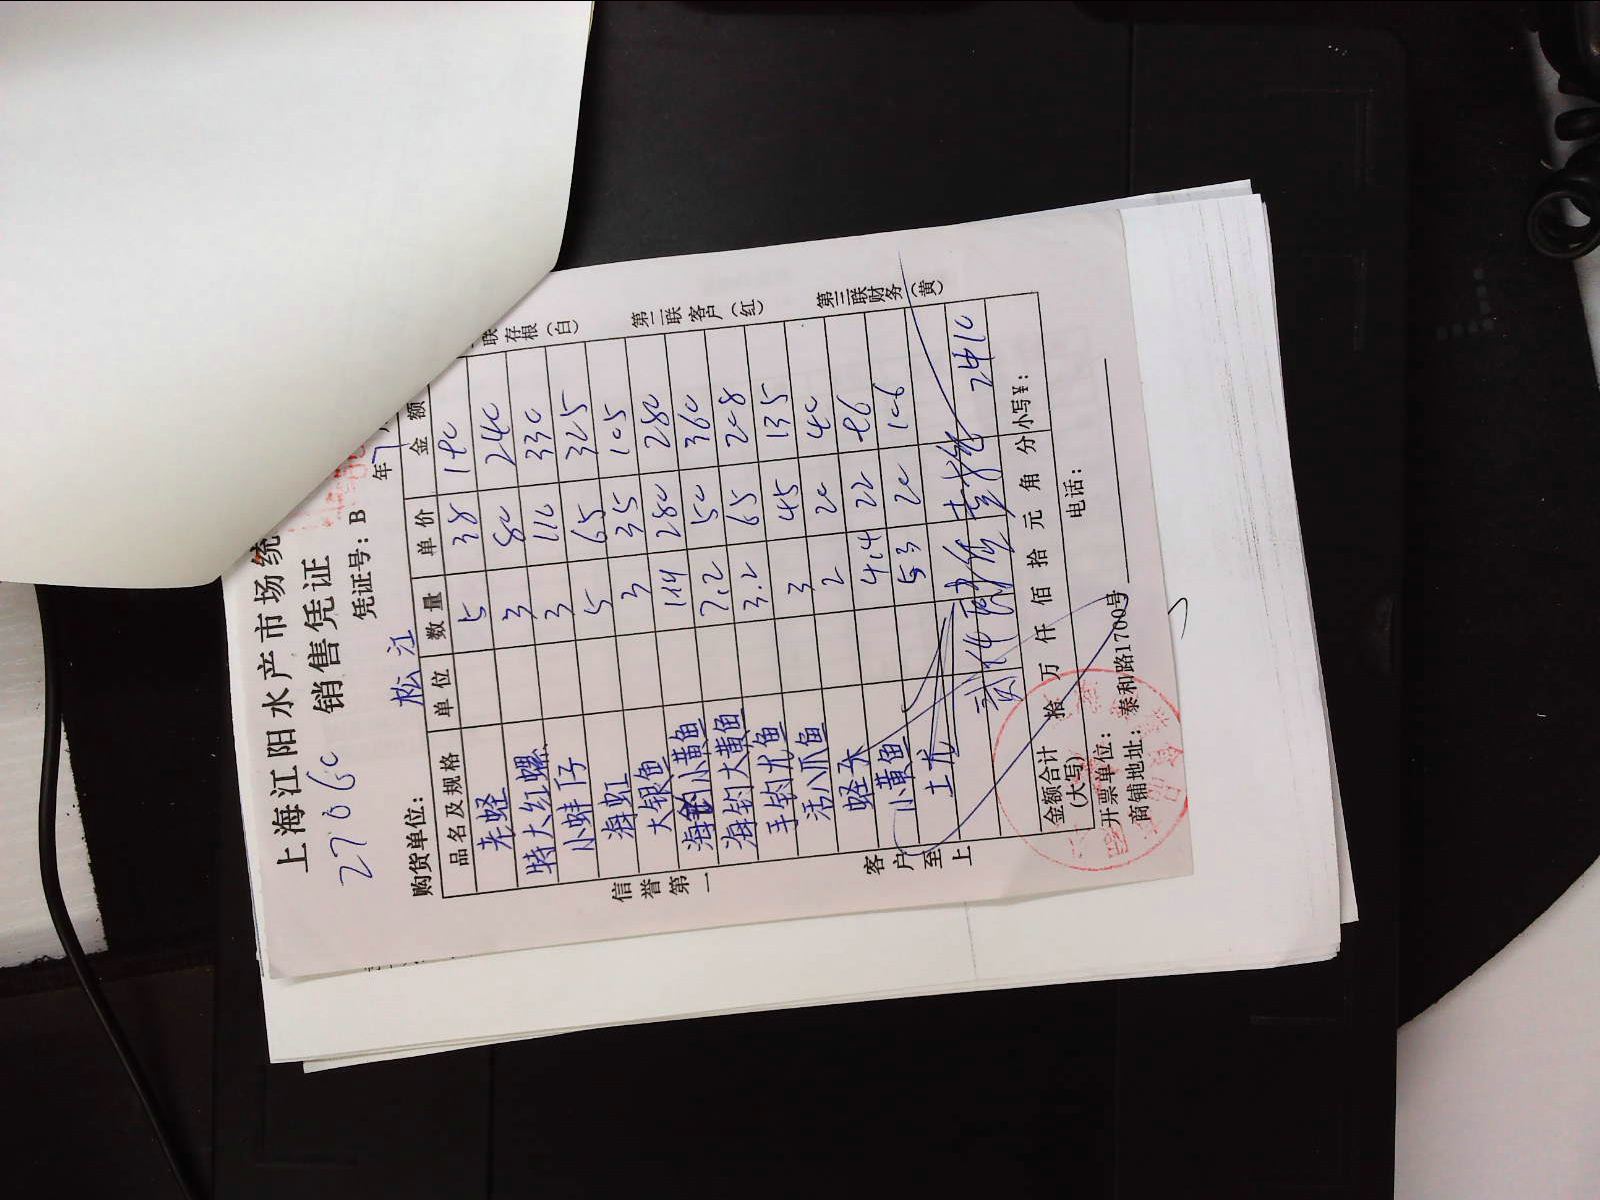 上海江阳水产市场统
27060
销售凭证
凭证号：B
年7
购货单位： 松江
品名及规格 单位 数量 单价 金额
老蛏 5 38 190
特大红螺 3 80 240
小蚌仔 3 110 330
海虹 5 65 325
大银鱼 3 35 105
海钓小黄鱼 1.14 280 280
海钓大黄鱼 7.2 50 360
手钓尤鱼 3.2 65 208
活八爪鱼 3 45 135
蛏子 2 20 40
小黄鱼 4.4 22 96
土龙 5.3 20 106
2410
金额合计
(大写) 拾 万 仟 佰 拾 元 角 分 小写¥：
开票单位： 电话：
商铺地址： 泰和路1700号
信誉第一
客户至上
联存根（白）
第二联客户（红）
第三联财务（黄）